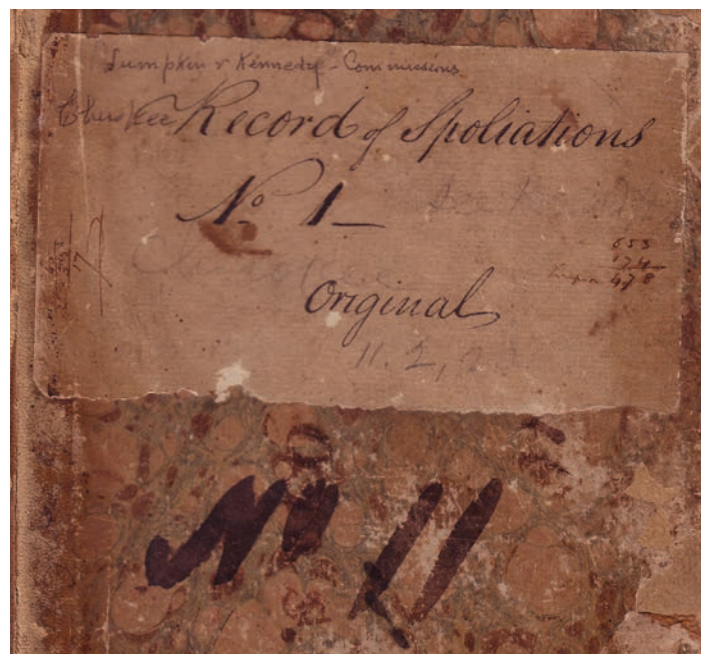 Lumpkin & Kennedy - Commissions
Cherokee Record of Spoliations
No. 1
653
174
478
Original
11. 2,
No 11